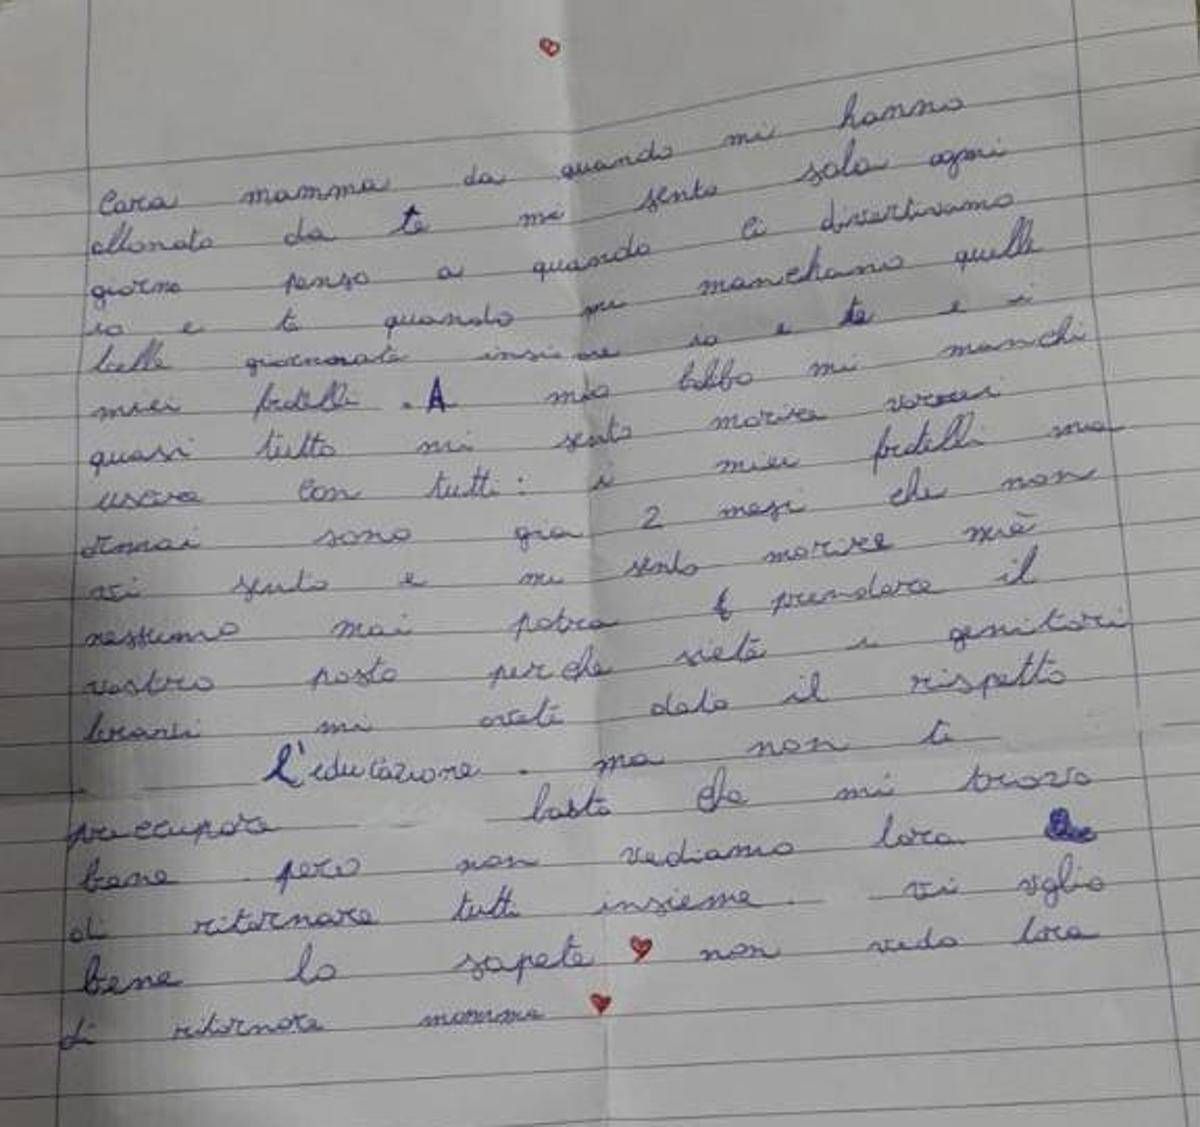 Cara mamma da quando mi hanno
allonato da te mi sento sola ogni
giorno penso a quando ci divertivamo
io e te quando mi manchano quelle
belle giornnate insieme io e te e i
miei fratelli . A mio babbo mi manchi
quasi tutto mi sento morire vorrei
uscire con tutti : i miei fratelli ma
ormai sono gia 2 mesi che non
vi sento e mi sento morire
nessumo mai potra prendere il
vostro posto perche siete i genitori
bravi mi avete dato il rispetto
l'educazione . ma non te
preccupare basta che mi trovo
bene . pero non vediamo lora
di ritornare tutti insieme . vi vglio
bene lo sapete non vedo lora
di ritornare mamma